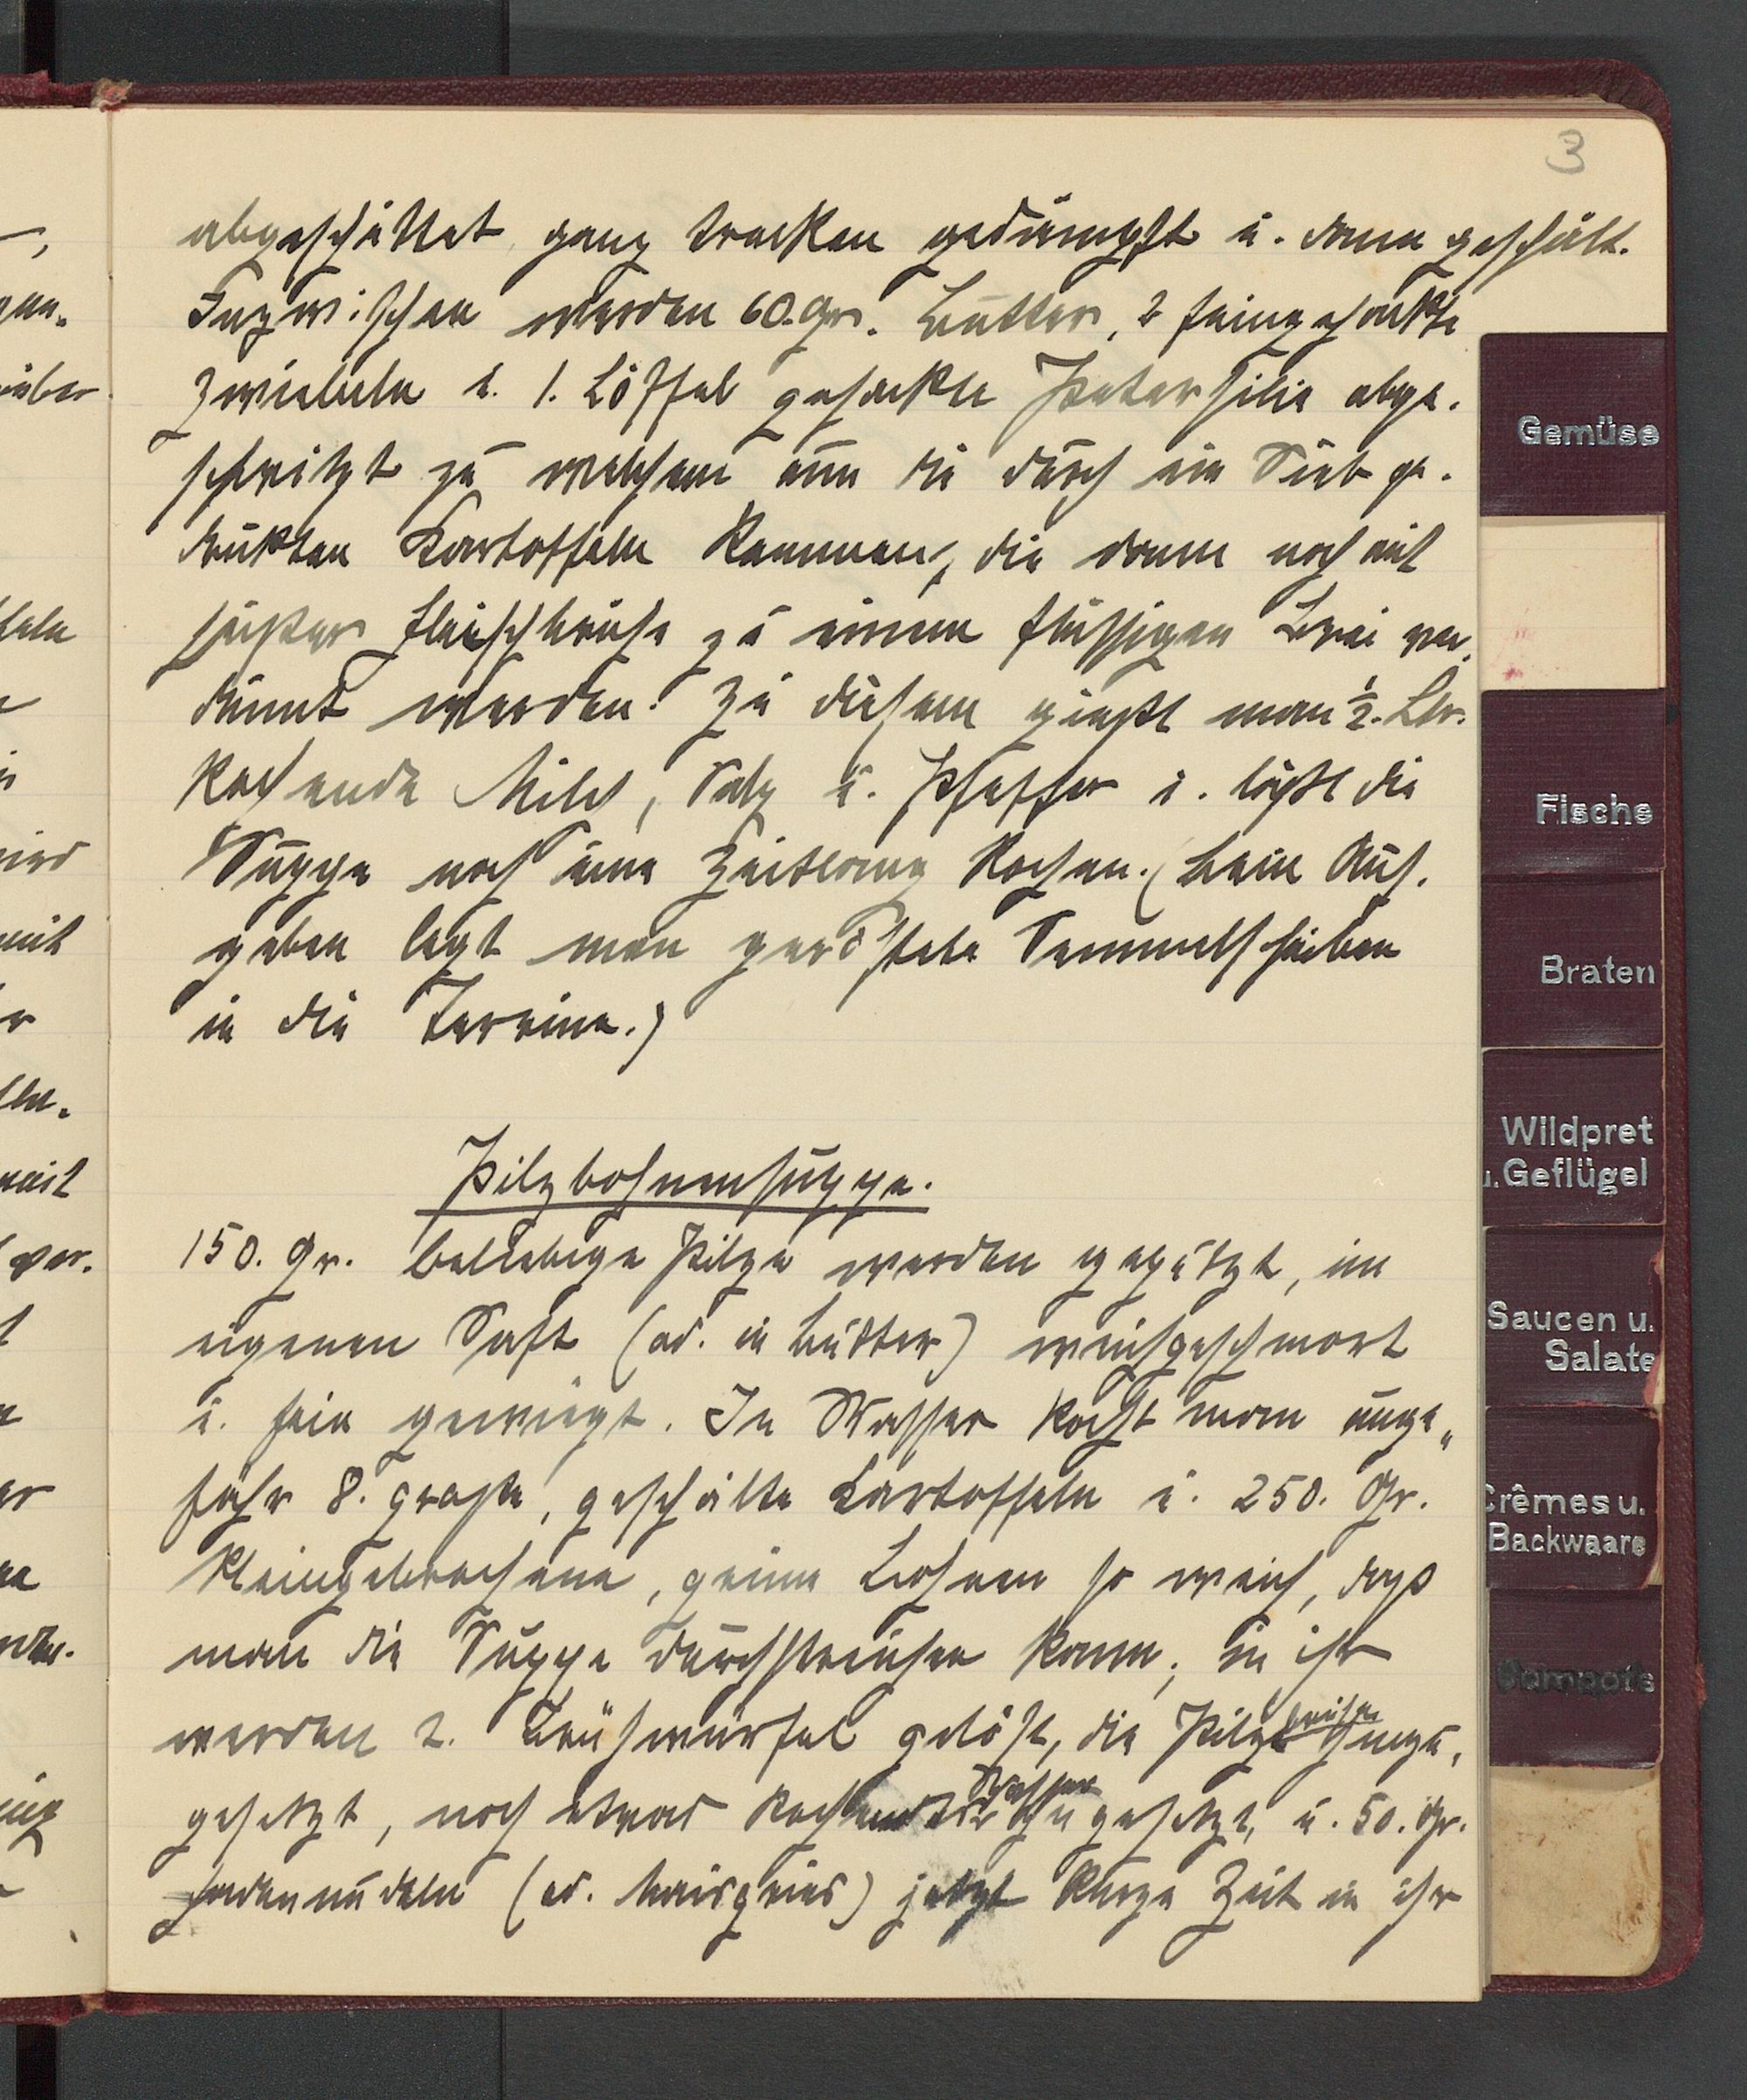 3
abgeschüttet, ganz trocken gedämpft u. dann geschält.
Inzwischen werden 60. Gr. Butter, 2 feingehackte
Zwiebeln u. 1. Löffel gehackte Petersilie abge-
schwitzt zu welchem nun die durch ein Sieb ge-
drückten Kartoffeln kommen, die dann noch mit
heißer Fleischbrühe zu einem flüssigen Brei ver-
dünnt werden. Zu diesem gießt man ½. Ltr.
kochende Milch, Salz u. Pfeffer u. läßt die
Suppe noch eine Zeitlang kochen. (Beim Auf-
geben legt man geröstete Semmelscheiben
in die Terrine.)
Pilzbohnensuppe.
150. Gr. beliebige Pilze werden geputzt, im
eigenen Saft (od. in Butter) weichgeschmort
u. fein gewiegt. In Wasser kocht man unge„
fähr 8. große, geschälte Kartoffeln u. 250. Gr.
kleingebrochene, grüne Bohnen so weich, dass
man die Suppe durchstreichen kann; in ihr
werden 2. Brühwürfel gelöst, die Pilzbrühe hinzu-
gesetzt, noch etwas kochendes Wasser zugesetzt, u. 50. Gr.
Fadennudeln (od. Maisgries) jetzt kurze Zeit in ihr
Gemüse
Fische
Braten
Wildpret
u. Geflügel
Saucen u.
Salate
Crêmes u.
Backwaare
Compots